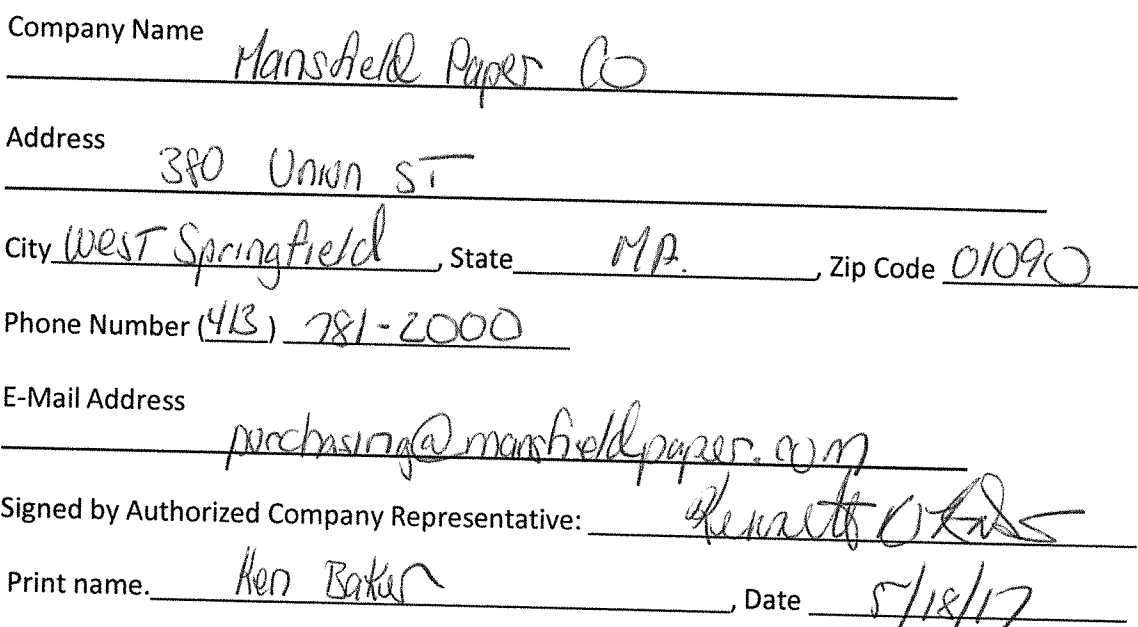 Company Name Mansfield Paper Co
Address 380 Union ST
City West Springfield, State MA., Zip Code 01090
Phone Number (413) 781-2000
E-Mail Address
purchasing@mansfieldpaper.com
Signed by Authorized Company Representative: Kenneth
Print name. Ken Baker, Date 5/18/17